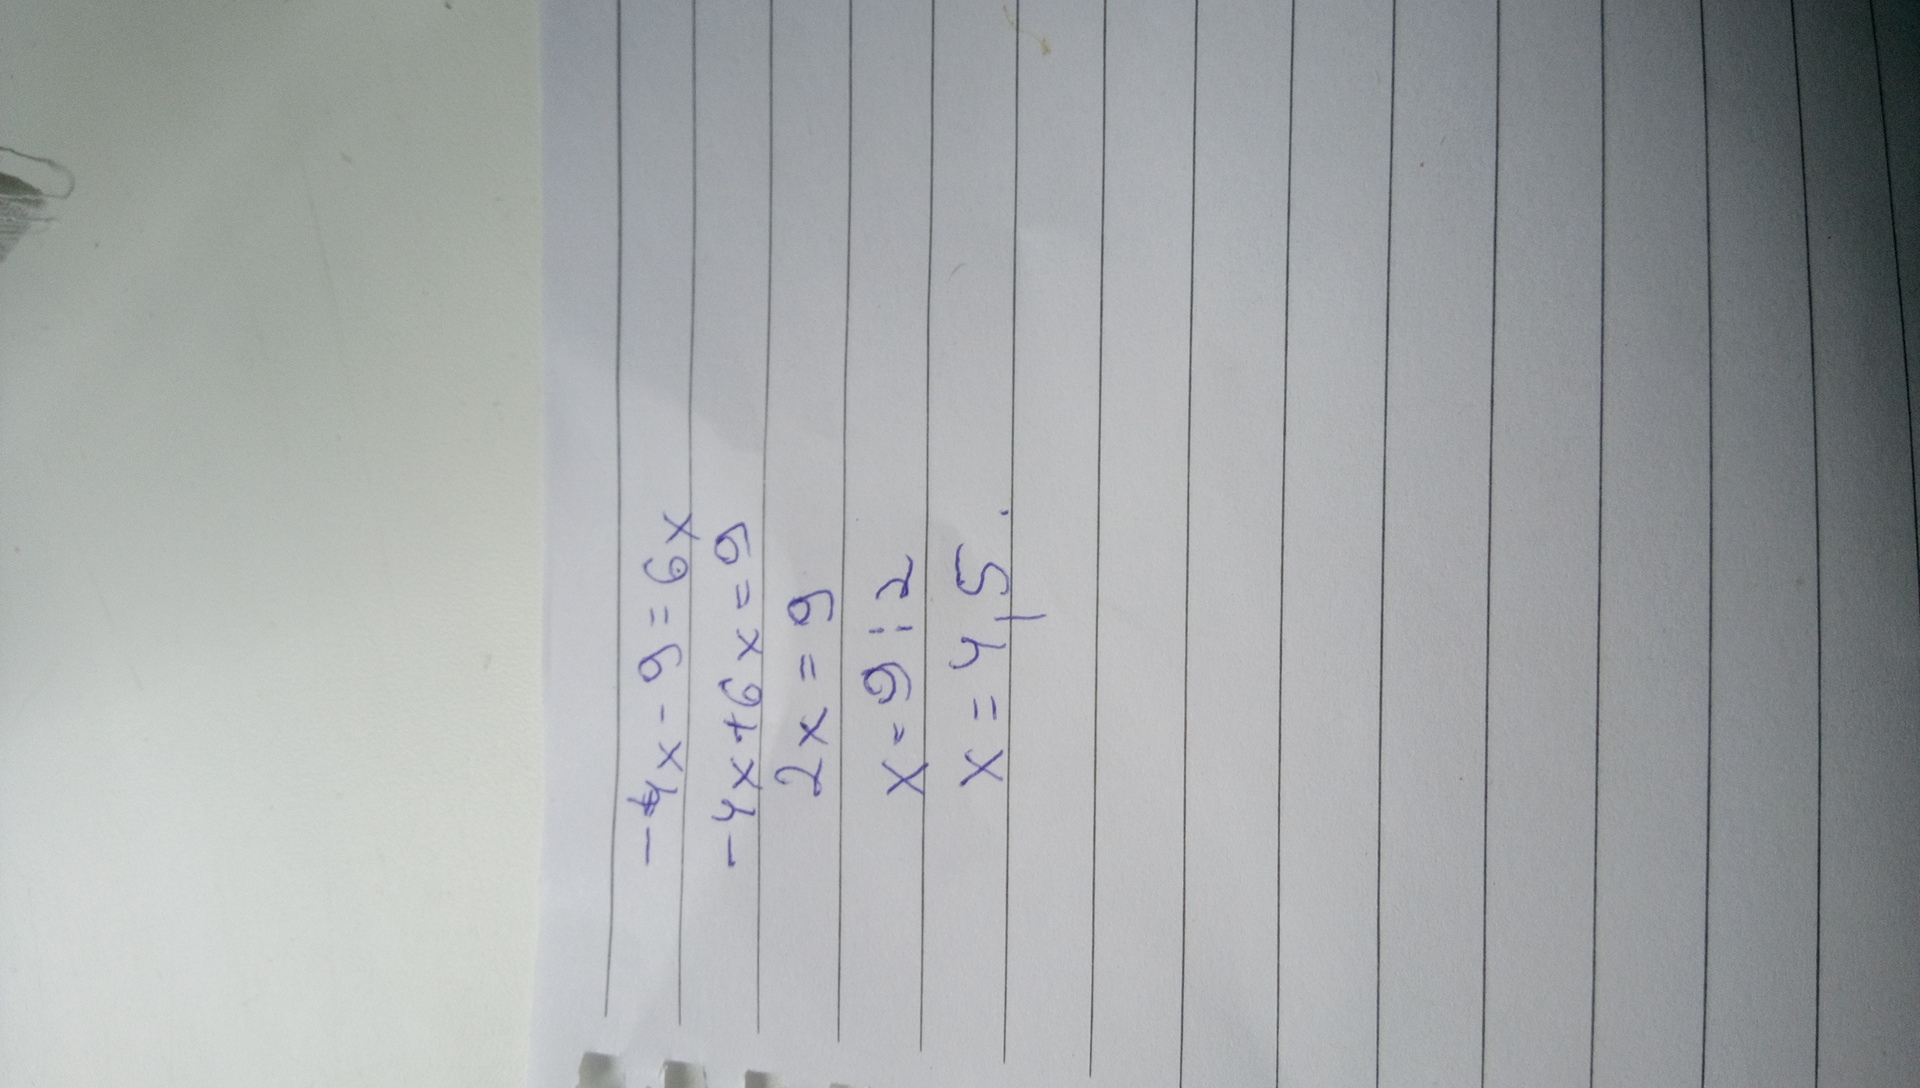 -4x-9=6x
-4x+6x=9
2x=9
x=9:2
x=4,5.